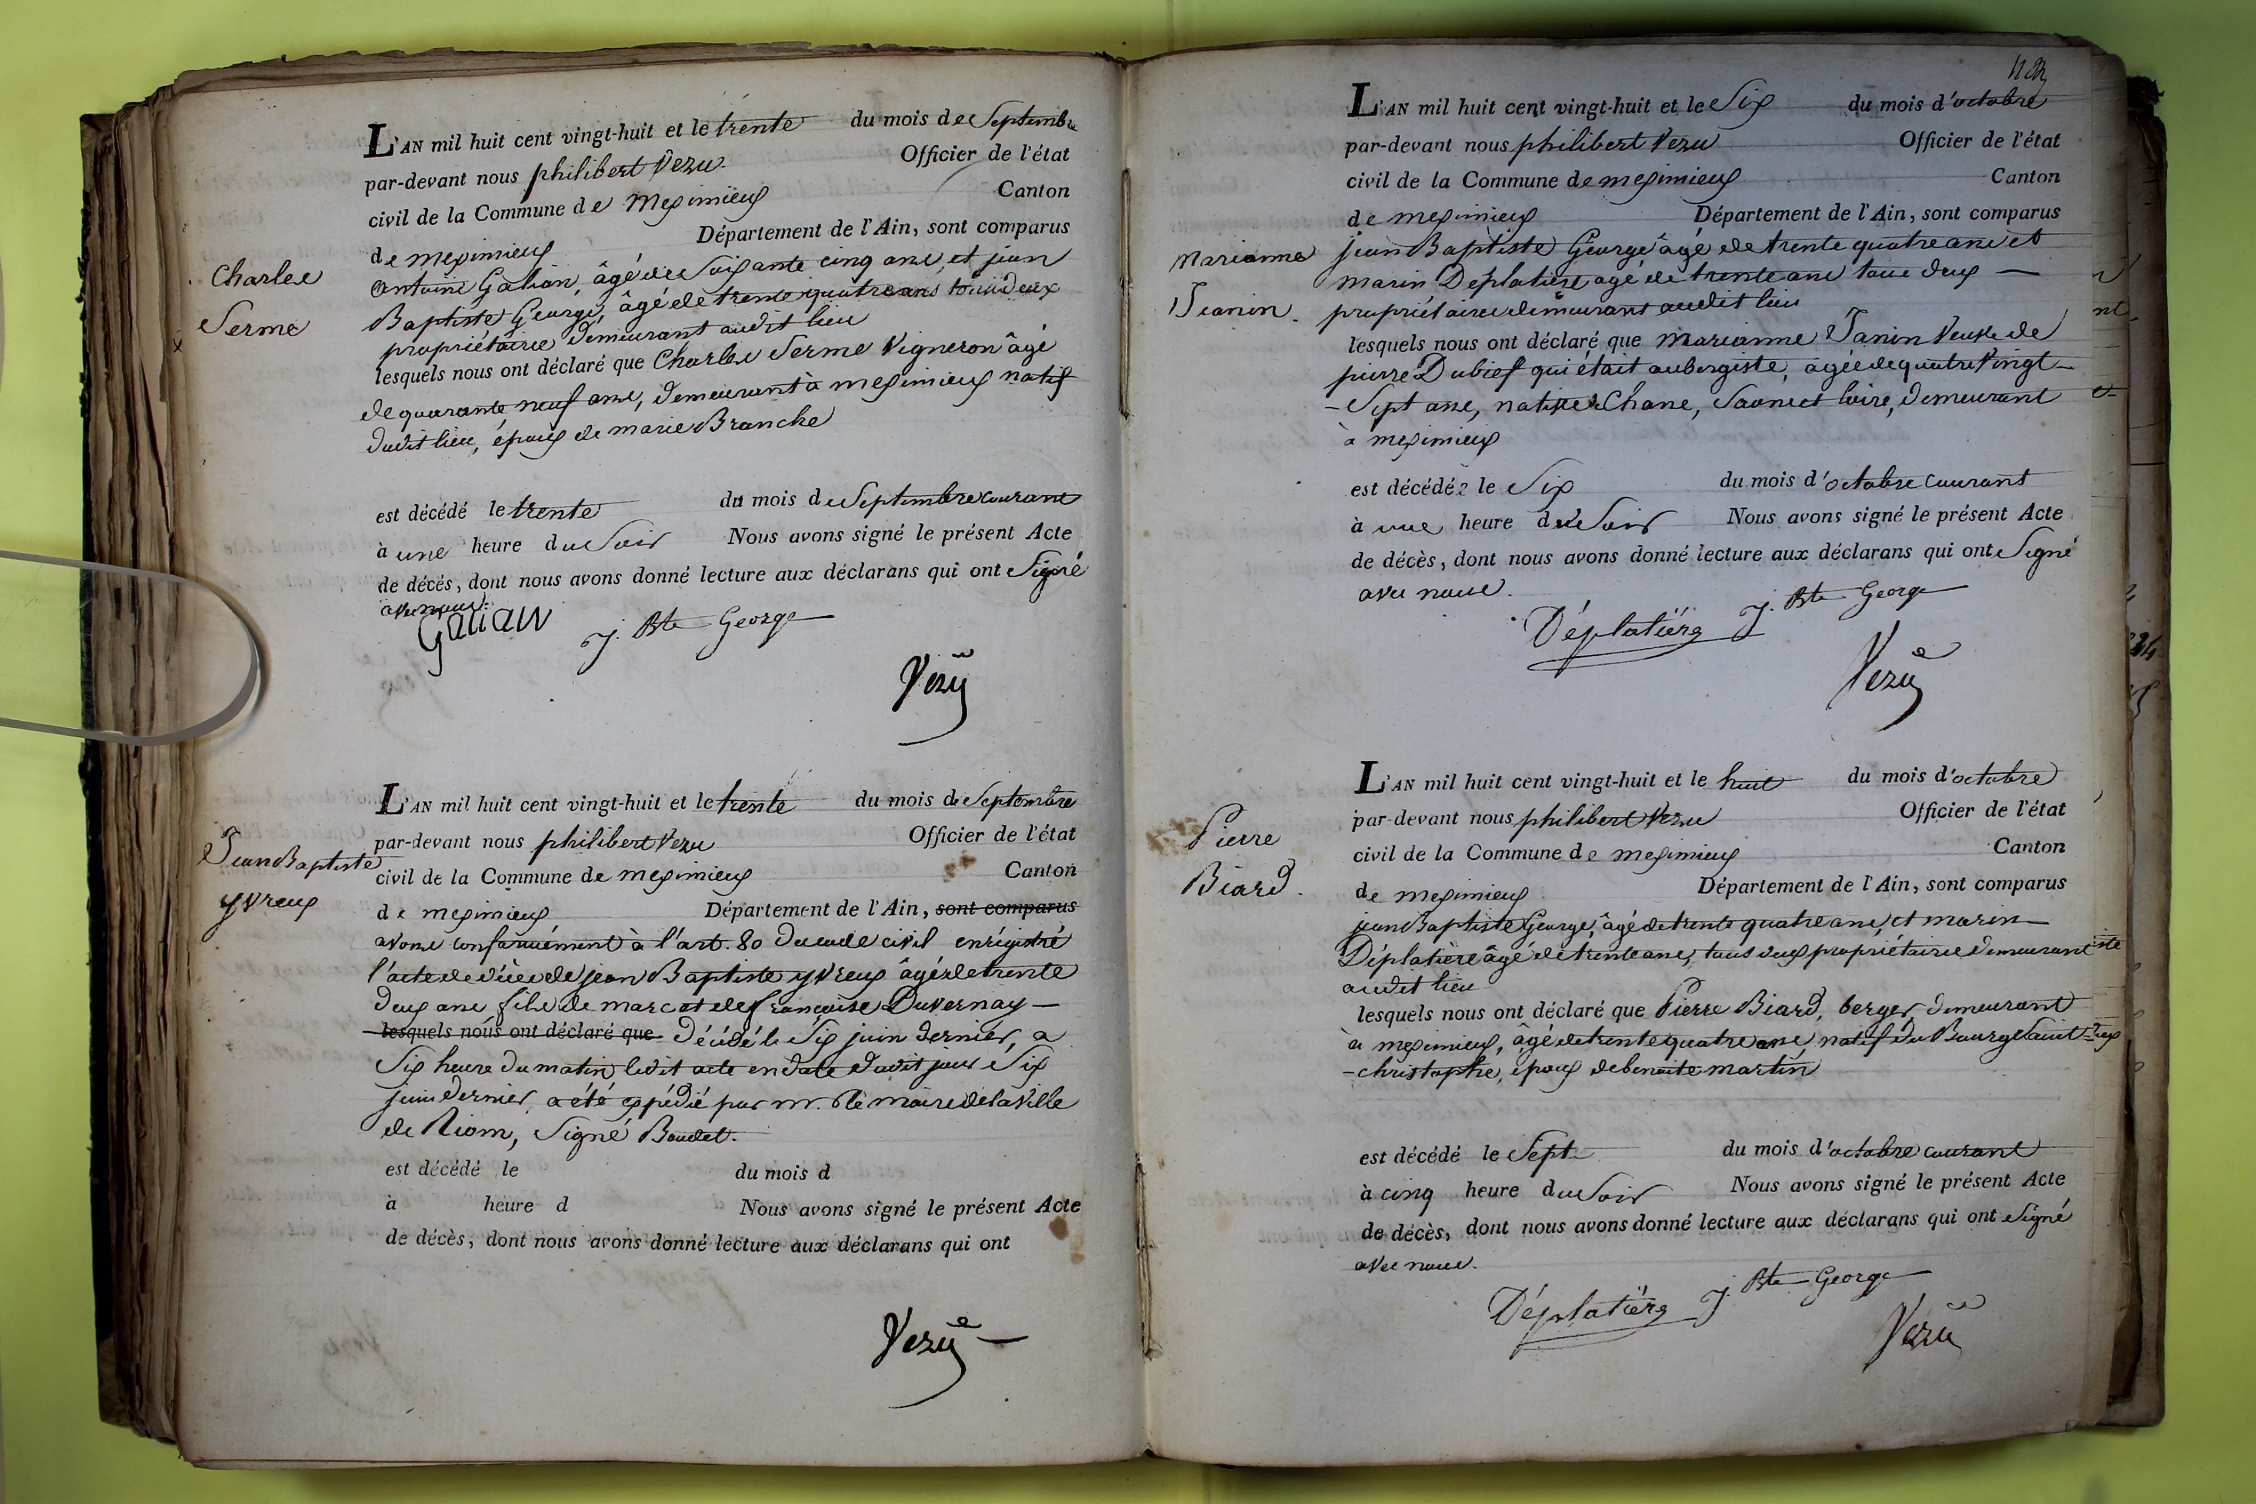 L'AN mil huit cent vingt-huit et le trente du mois de Septembre
par-devant nous philibert Vezu Officier de l'état
civil de la Commune de Meximieux Canton
de meximieux Département de l'Ain, sont comparus
Charles
Serme
antoine Galian, âgé de Soixante cinq ans, et jean
Baptiste George, âgé de trente quatre ans tous deux
propriétaires demeurant audit lieu
lesquels nous ont déclaré que Charles Serme Vigneron âgé
de quarante neuf ans, demeurant à meximieux natif
dudit lieu, époux de marie Branche
est décédé le trente du mois de Septembre courant
à une heure du Soir Nous avons signé le présent Acte
de décès, dont nous avons donné lecture aux déclarans qui ont Signé
avec nous.
Galian J. Bte George
Vezu
L'AN mil huit cent vingt-huit et le trente du mois de Septembre
par-devant nous philibert Vezu Officier de l'état
Jean Baptiste
yvreux
civil de la Commune de meximieux Canton
de meximieux Département de l'Ain, sont comparus
avons conformément à l'art. 80 du code civil enrégistré
l'acte de décès de jean Baptiste yvreux âgé de trente
deux ans fils de marc et de françoise Duvernay
lesquels nous ont déclaré que Décédé le Six juin dernier, a
Six heure du matin, ledit acte en date dudit jour Six
juin dernier, a été expédié par mr. le maire de la Ville
de Riom, Signé Baudet.
est décédé le du mois d
à heure d Nous avons signé le présent Acte
de décès, dont nous avons donné lecture aux déclarans qui ont
Vezu
L'AN mil huit cent vingt-huit et le Six du mois d'octobre
par-devant nous philibert Vezu Officier de l'état
civil de la Commune de meximieux Canton
de meximieux Département de l'Ain, sont comparus
Marianne
Jeanin.
jean Baptiste George âgé de trente quatre ans et
marin Déplatière agé de trente ans tous deux
propriétaires demeurant audit lieu
lesquels nous ont déclaré que Marianne Janin Veuve de
pierre Dubief qui était aubergiste, âgée de quatre Vingt
Sept ans, native Chane, Saone et loire, demeurant
à meximieux
est décédée le Six du mois d'octobre courant
à une heure du Soir Nous avons signé le présent Acte
de décès, dont nous avons donné lecture aux déclarans qui ont Signé
avec nous.
Déplatière J. Bte George
Vezu
L'AN mil huit cent vingt-huit et le huit du mois d'octobre
par-devant nous philibert Vezu Officier de l'état
Pierre
Biard.
civil de la Commune de meximieux Canton
de meximieux Département de l'Ain, sont comparus
jean Baptiste George, âgé de trente quatre ans, et marin
Déplatière âgé de trente ans, tous deux propriétaires demeurant
audit lieu
lesquels nous ont déclaré que Pierre Biard, berger, demeurant
à meximieux, âgé de trente quatre ans, natif du Bourg Saint
christophe, époux de benoite martin
est décédé le Sept du mois d'octobre courant
à cinq heure du Soir Nous avons signé le présent Acte
de décès, dont nous avons donné lecture aux déclarans qui ont Signé
avec nous.
Déplatière J. Bte George
Vezu